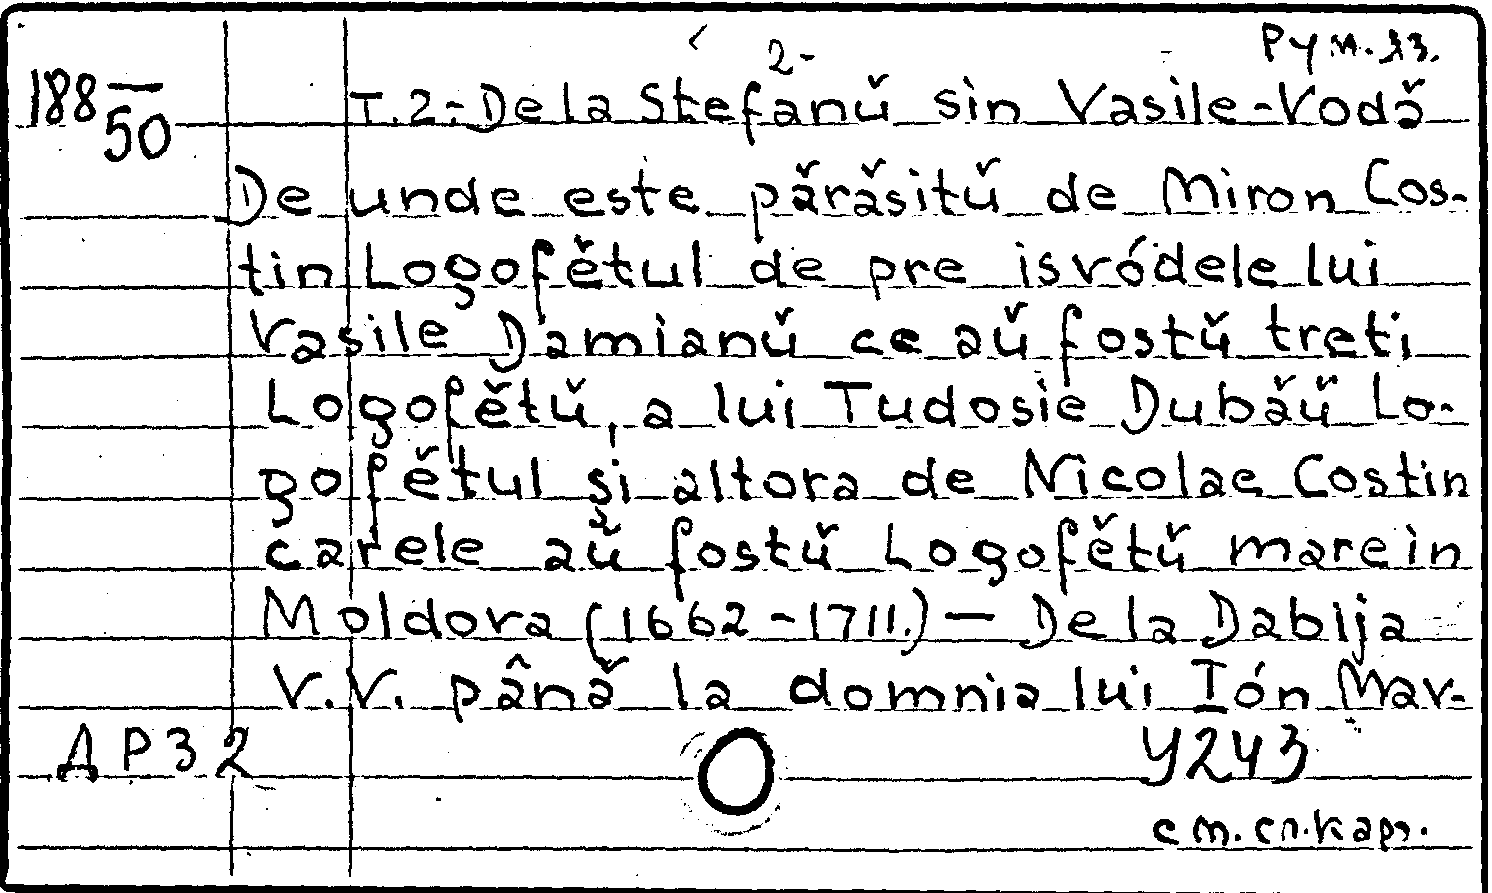 2-
Рум. яз.
188—/50 T.2:-De la Stefanŭ sin Vasile-Vodă
De unde este părăsitŭ de Miron Cos-
tin Logofĕtul de pre isvódele lui
Vasile Damianŭ ce aŭ fostŭ treti
Logofĕtŭ, a lui Tudosie Dubăŭ Lo-
gofĕtul şi altora de Nicolae Costin
carele aŭ fostŭ Logofĕtŭ mare in
Moldova (1662-1711.) — De la Dabija
V.V. până la domnia lui Ión Mav-
ДР32 У243
см. сл. карт.